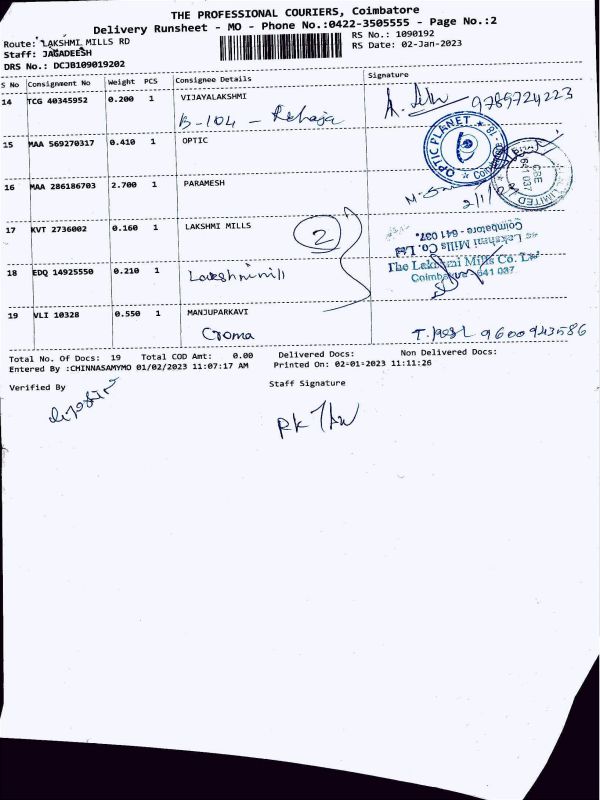 THE PROFESSIONAL COURIERS, Coimbatore
Delivery Runsheet - MO - Phone No.:0422-3505555 - Page No.:2
Route: LAKSHMI MILLS RD
RS No.: 1090192
Staff: JAGADEESH
RS Date: 02-Jan-2023
DRS No.: DCJB109019202
S No Consignment No Weight PCS Consignee Details Signature
14 TCG 40345952 0.200 1 VIJAYALAKSHMI
B-104 - Rehaja
9789724223
15 MAA 569270317 0.410 1 OPTIC
OPTIC PLANET
16 MAA 286186703 2.700 1 PARAMESH
CBE
641 037
LIMITED
2/1/23
17 KVT 2736002 0.160 1 LAKSHMI MILLS
2
Lakshmi Mills Co. Ltd
Coimbatore - 641 037.
18 EDQ 14925550 0.210 1
Lakshmimill
The Lakshmi Mills Co. Ltd
Coimbatore 641 037
19 VLI 10328 0.550 1 MANJUPARKAVI
Croma
9600943586
Total No. Of Docs: 19 Total COD Amt: 0.00 Delivered Docs: Non Delivered Docs:
Entered By :CHINNASAMYMO 01/02/2023 11:07:17 AM Printed On: 02-01-2023 11:11:26
Verified By
Staff Signature